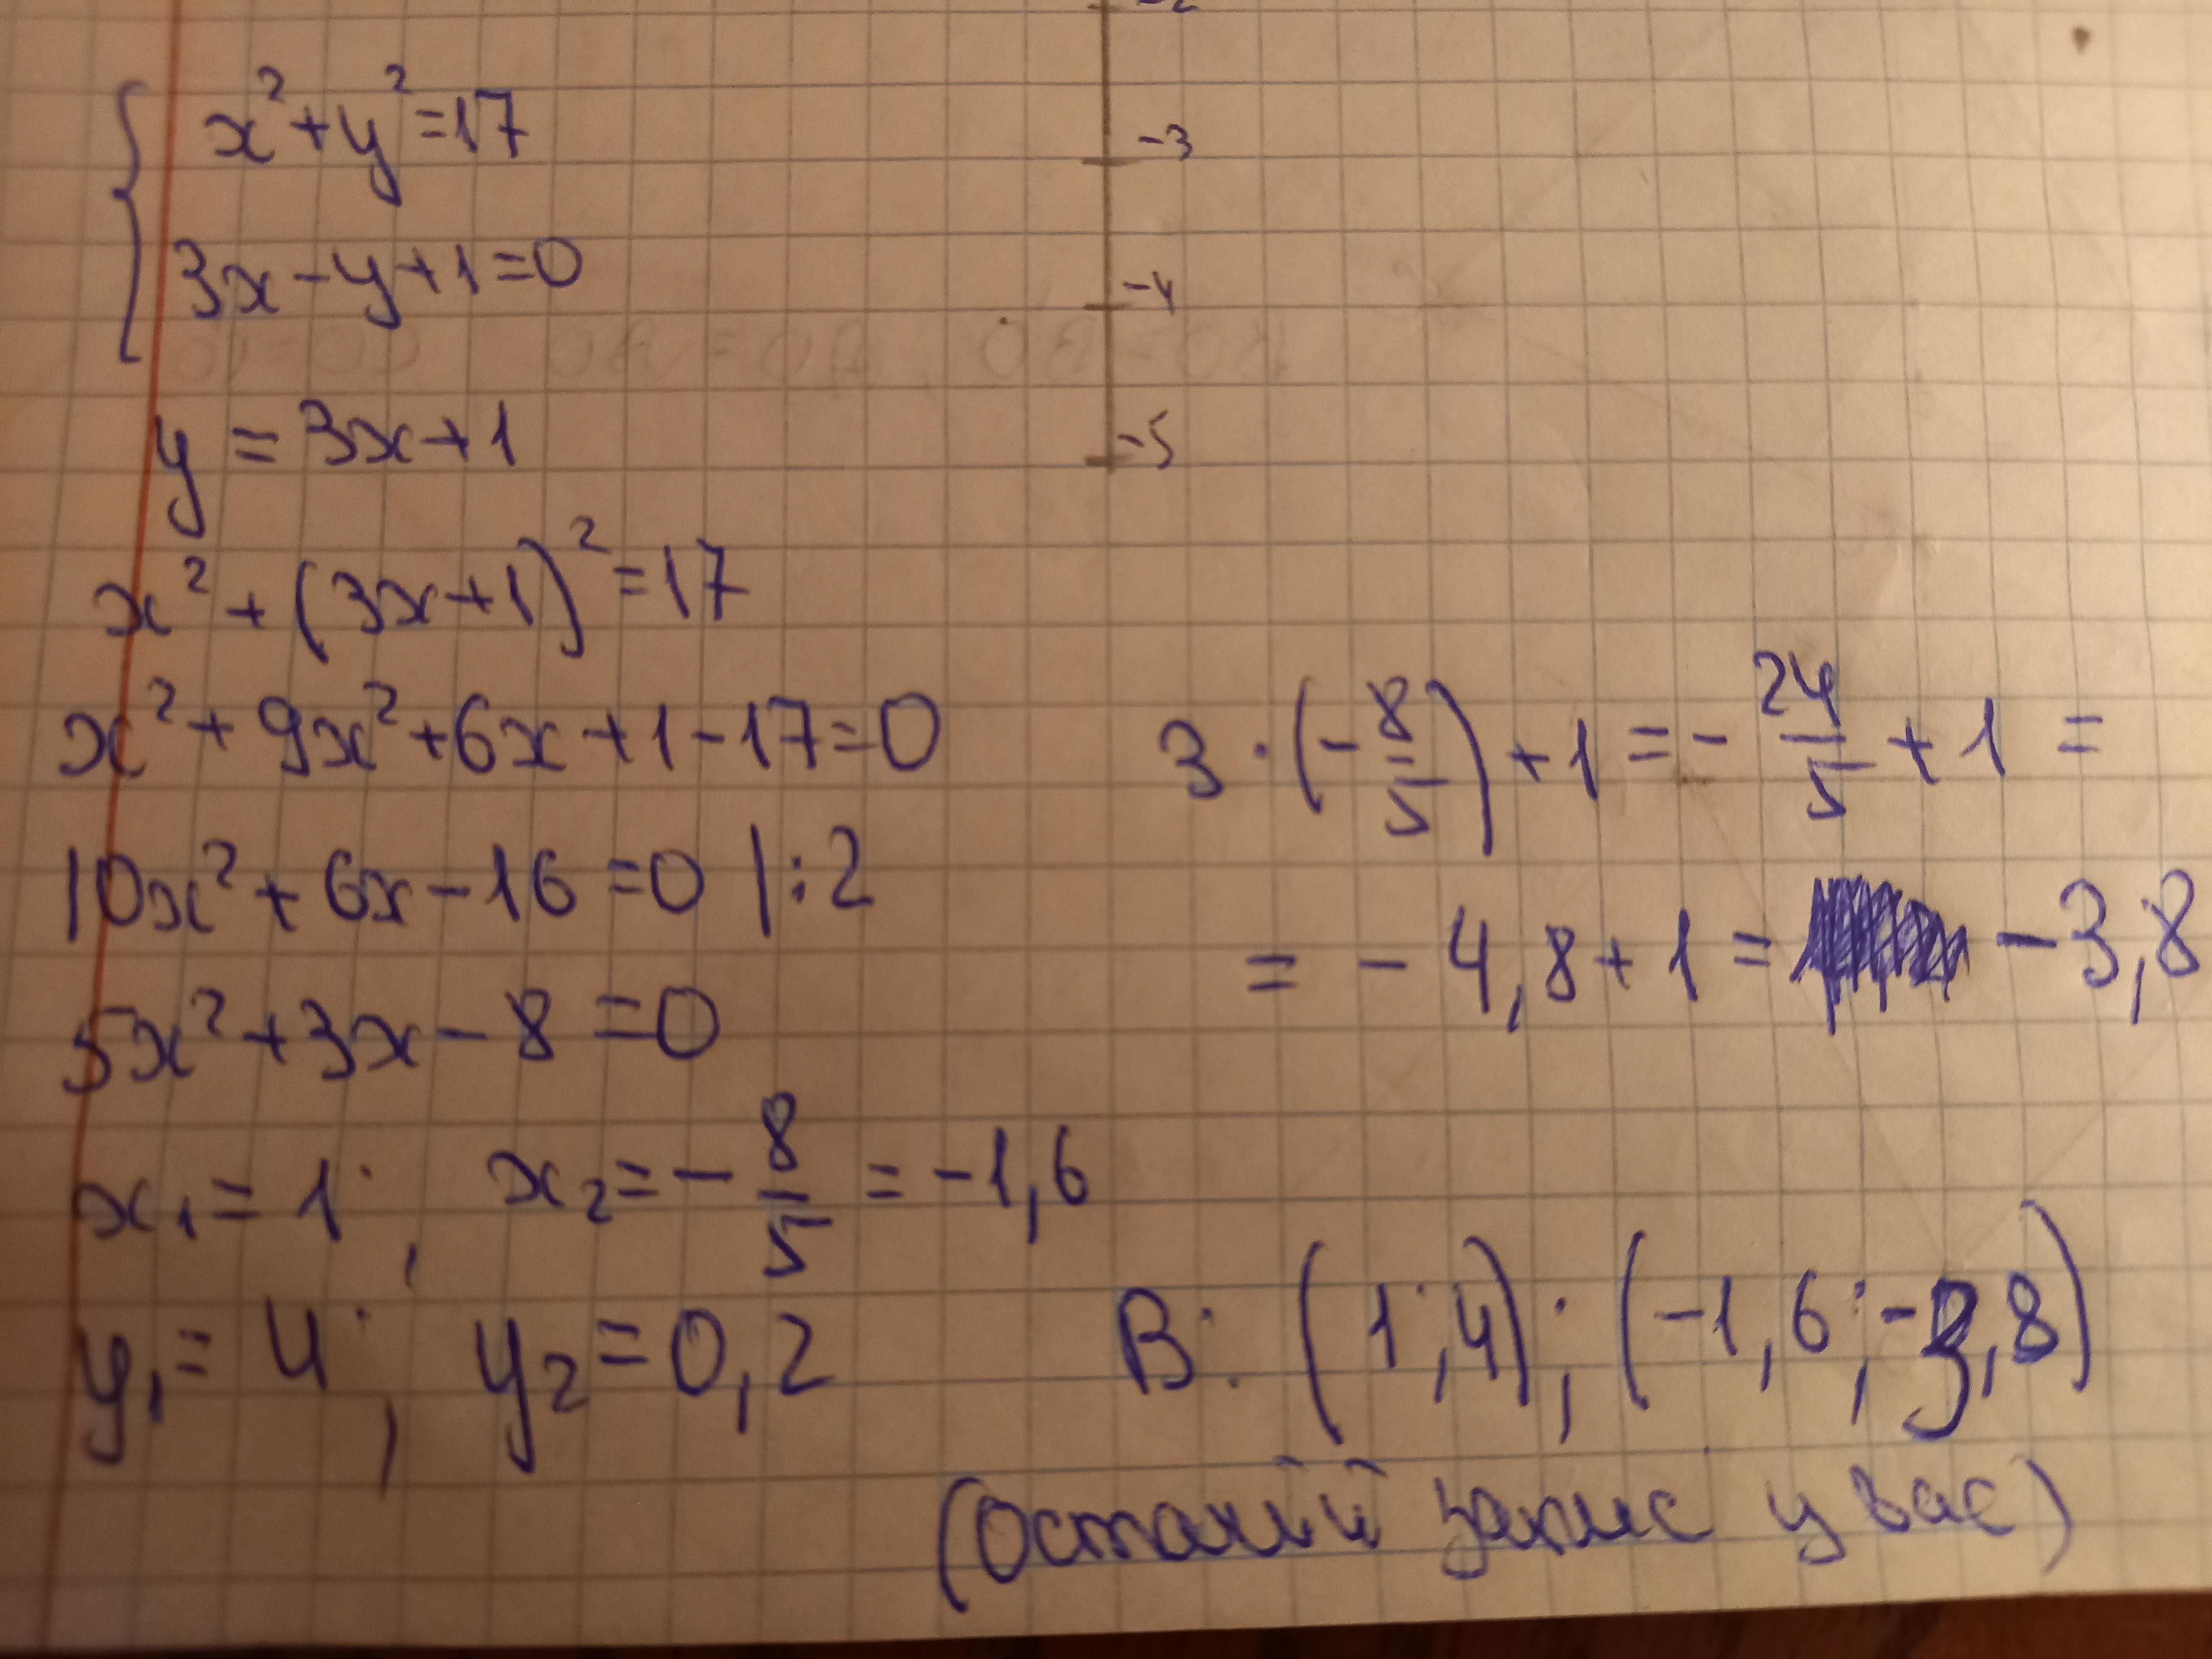 -2
x²+y²=17
-3
3x-y+1=0
-4
y = 3x+1
-5
x²+(3x+1)²=17
x²+9x²+6x+1-17=0
10x²+6x-16=0 |:2
5x²+3x-8=0
x₁=1; x₂=-8/5=-1,6
y₁=4; y₂=0,2
3·(-8/5)+1=-24/5+1=
=-4,8+1= -3,8
В: (1;4); (-1,6;-3,8)
(Останій запис у вас)